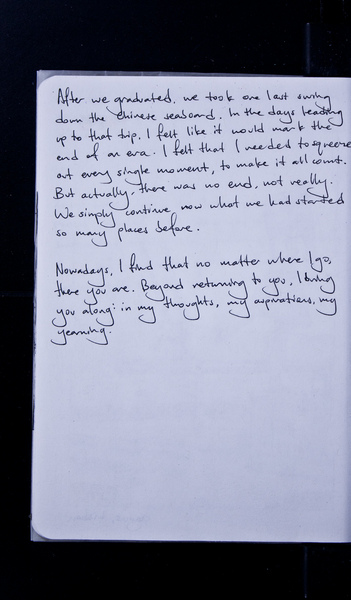 After we graduated, we took one last swing
down the Chinese seaboard. In the days leading
up to that trip, I felt like it would mark the
end of an era. I felt that I needed to squeeze
out every single moment, to make it all count.
But actually, there was no end, not really.
We simply continue now what we had started
so many places before.
Nowadays, I find that no matter where I go,
there you are. Beyond returning to you, I bring
you along: in my thoughts, my aspirations, my
yearning.